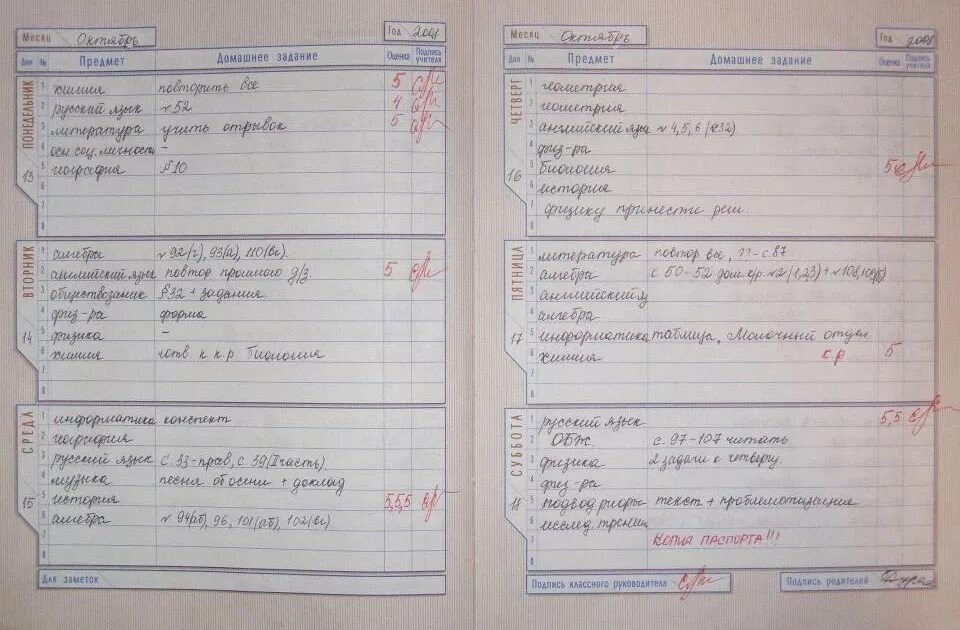 Месяц Октябрь Год 2008
Дни № Предмет Домашнее задание Оценка Подпись учителя
ПОНЕДЕЛЬНИК
13
1 химия повторить все 5
2 русский язык №52 4
3 литература учить отрывок 5
4 осн. соц. личности –
5 география §10
6
7
8
ВТОРНИК
14
1 алгебра №92(г), 93(а), 110(вг).
2 английский язык повтор прошлого д/з. 5
3 обществознание §32 + задания
4 физ-ра форма
5 физика –
6 химия готв. к к.р Биология
7
8
СРЕДА
15
1 информатика конспект
2 география
3 русский язык с. 33-прав, с. 39 (II часть).
4 музыка песня об осени + доклад
5 история 5,5,5
6 алгебра №94(аб), 96, 101(аб), 102(вг)
7
8
Для заметок
Месяц Октябрь Год 2008
Дни № Предмет Домашнее задание Оценка Подпись учителя
ЧЕТВЕРГ
16
1 геометрия
2 геометрия
3 английский язык №4,5,6 (с32)
4 физ-ра
5 биология 5
6 история
7 физику принести
8
ПЯТНИЦА
17
1 литература повтор все, с.87
2 алгебра с 50-52 дом.
3 английский яз
4 алгебра
5 информатика таблица, Молочный отдел
6 химия к.р 5
7
8
СУББОТА
18
1 русский язык 5,5
2 ОБЖ с. 97-107 читать
3 физика 2 задачи к четвергу.
4 физ-ра
5 текст +
6 исслед.
7 КОПИЯ ПАСПОРТА!!!
8
Подпись классного руководителя
Подпись родителей